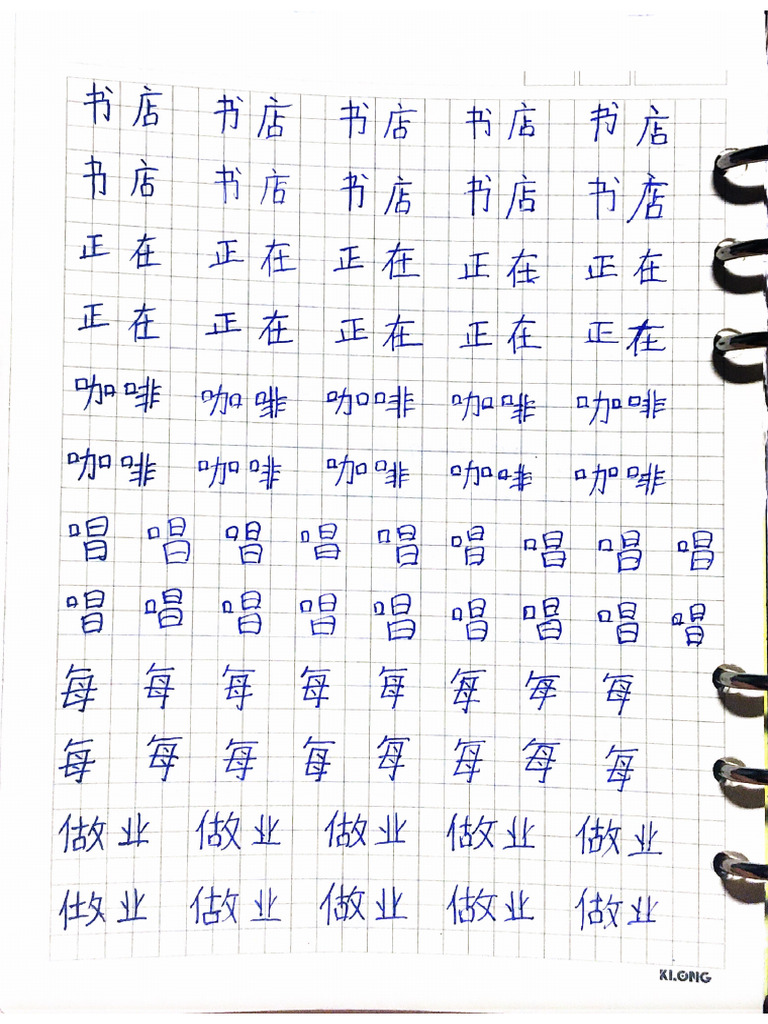 书店 书店 书店 书店 书店
书店 书店 书店 书店 书店
正在 正在 正在 正在 正在
正在 正在 正在 正在 正在
咖啡 咖啡 咖啡 咖啡 咖啡
咖啡 咖啡 咖啡 咖啡 咖啡
唱 唱 唱 唱 唱 唱 唱 唱 唱
唱 唱 唱 唱 唱 唱 唱 唱 唱
每 每 每 每 每 每 每 每
每 每 每 每 每 每 每 每
做业 做业 做业 做业 做业
做业 做业 做业 做业 做业
KLONG